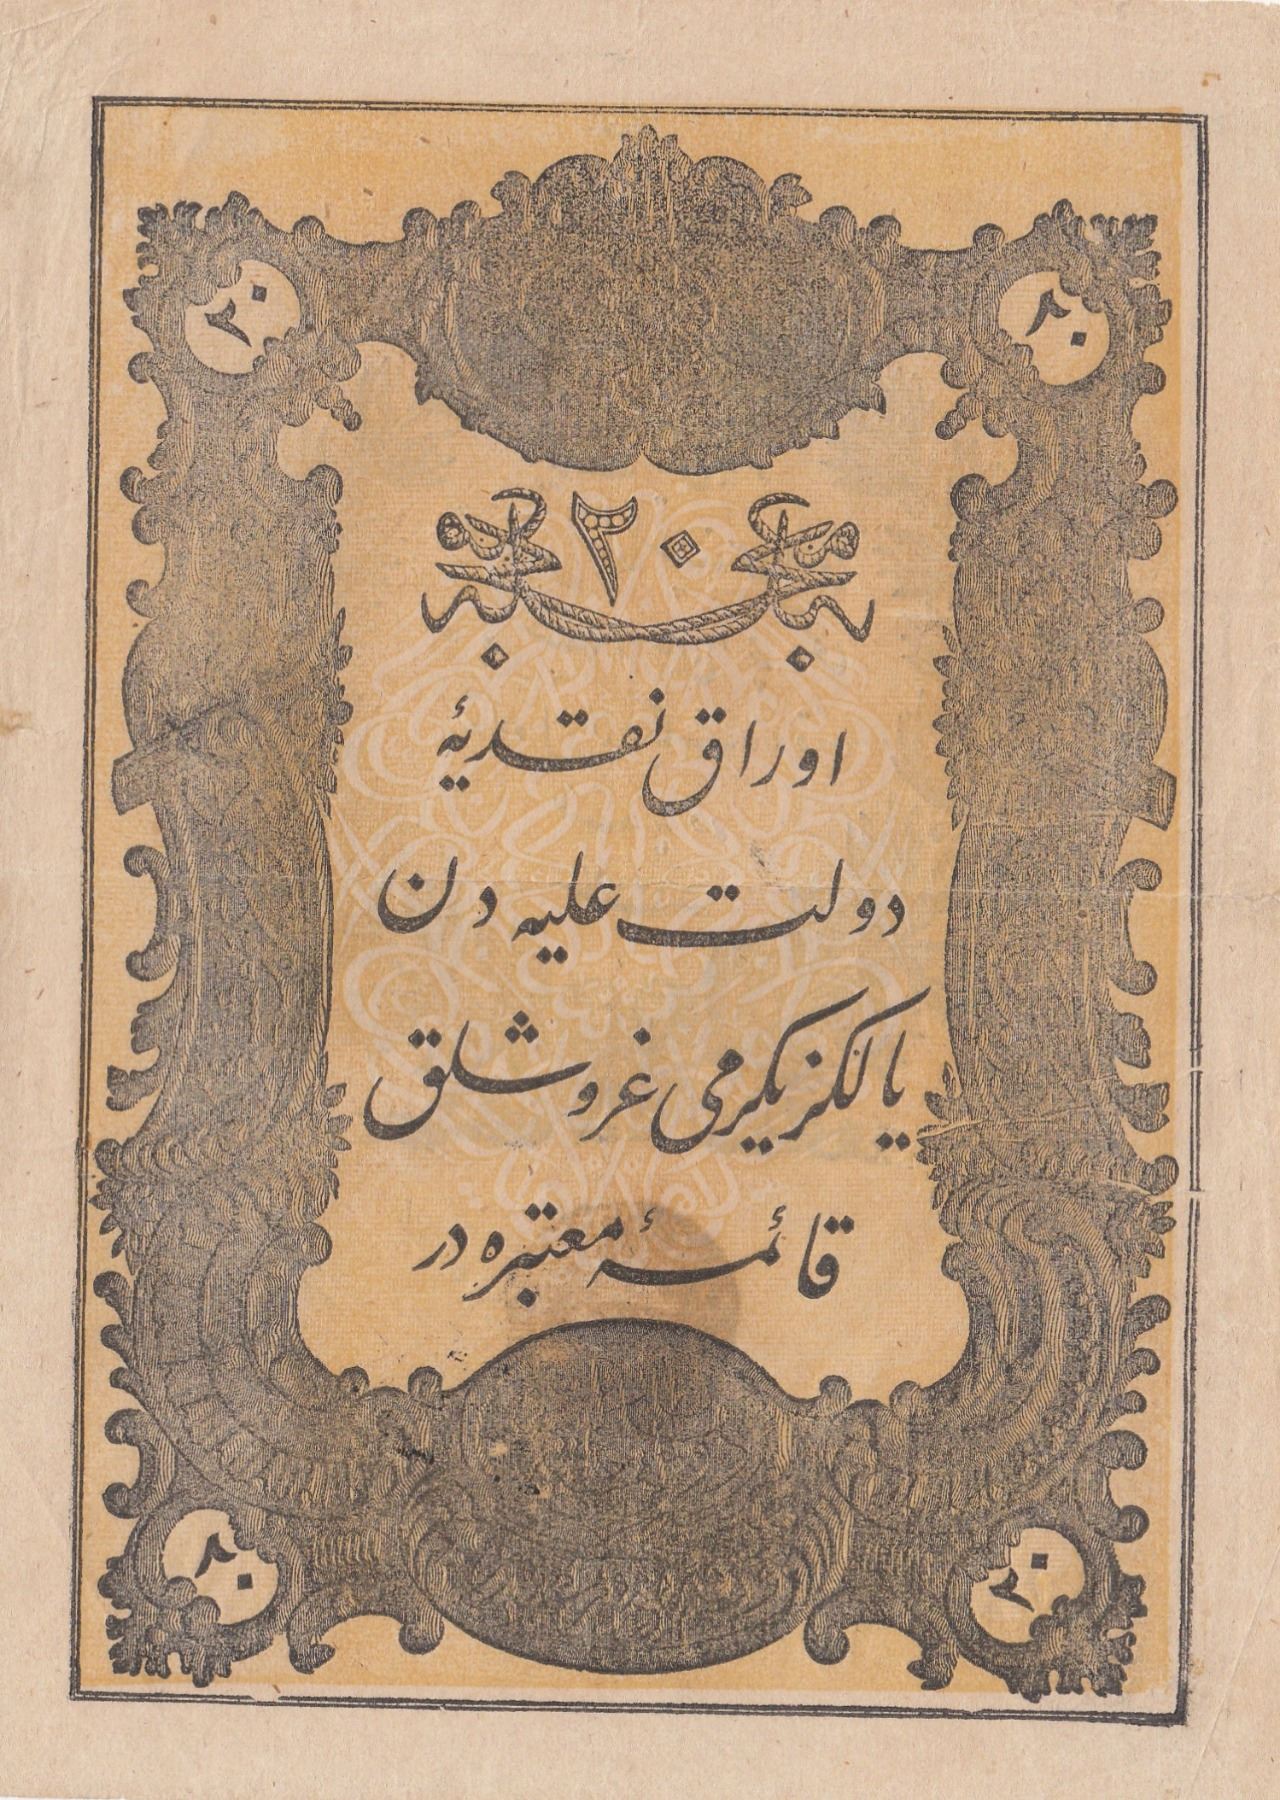 ٢٠
٢٠
٢٠
اوراق نقدیۀ
دولت علیه دن
یالکز یکرمی غروشلق
قائمۀ معتبره در
٢٠
٢٠